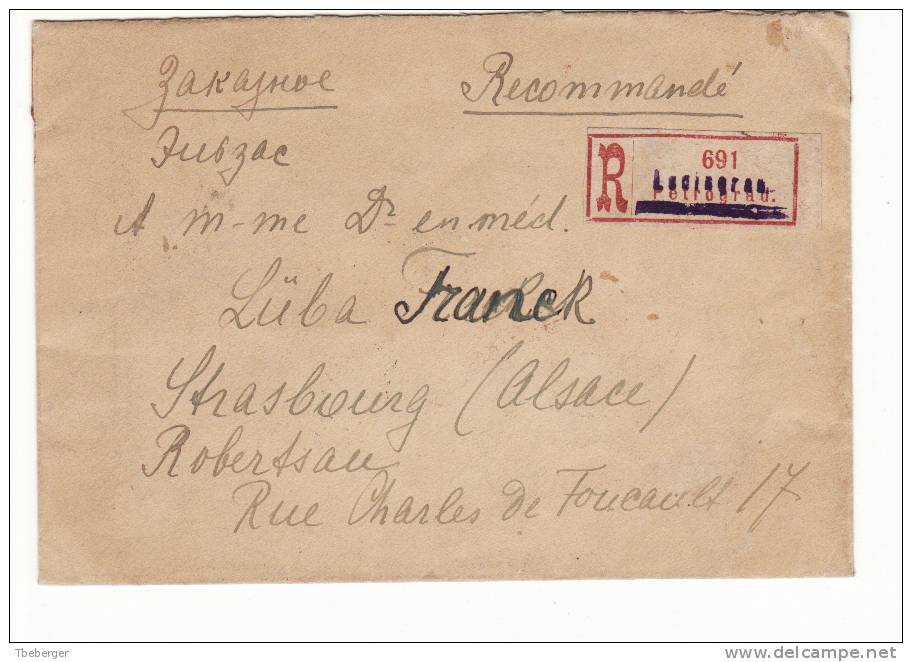 Заказное Recommandé
Эльзас
R 691
Petrograd.
A m-me Dr en méd.
Lüba Franck
Strasbourg (Alsace)
Robertsau
Rue Charles de Foucault 17
Tbeberger
delcampe.net